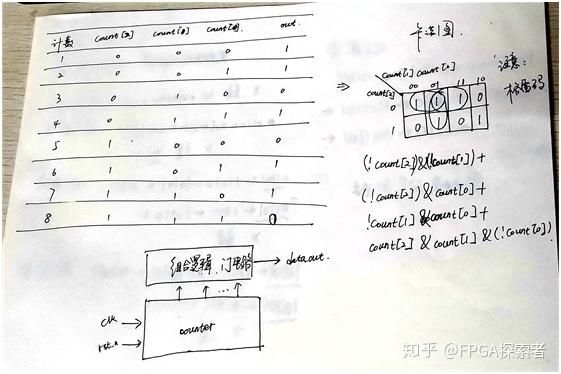 计数 count[2] count[1] count[0] out
1 0 0 0 1
2 0 0 1 1
3 0 1 0 0
4 0 1 1 1
5 1 0 0 0
6 1 0 1 1
7 1 1 0 1
8 1 1 1 0
⇒
卡诺图
count[1] count[0]
count[2] 00 01 11 10
0 1 1 1 0
1 0 1 0 1
注意:
格雷码
(!count[2])&(!count[1])+
(!count[2])&count[0]+
!count[1]&count[0]+
count[2]&count[1]&(!count[0])
组合逻辑、门电路 → dataout.
...
clk
counter
rst_n
知乎 @FPGA探索者